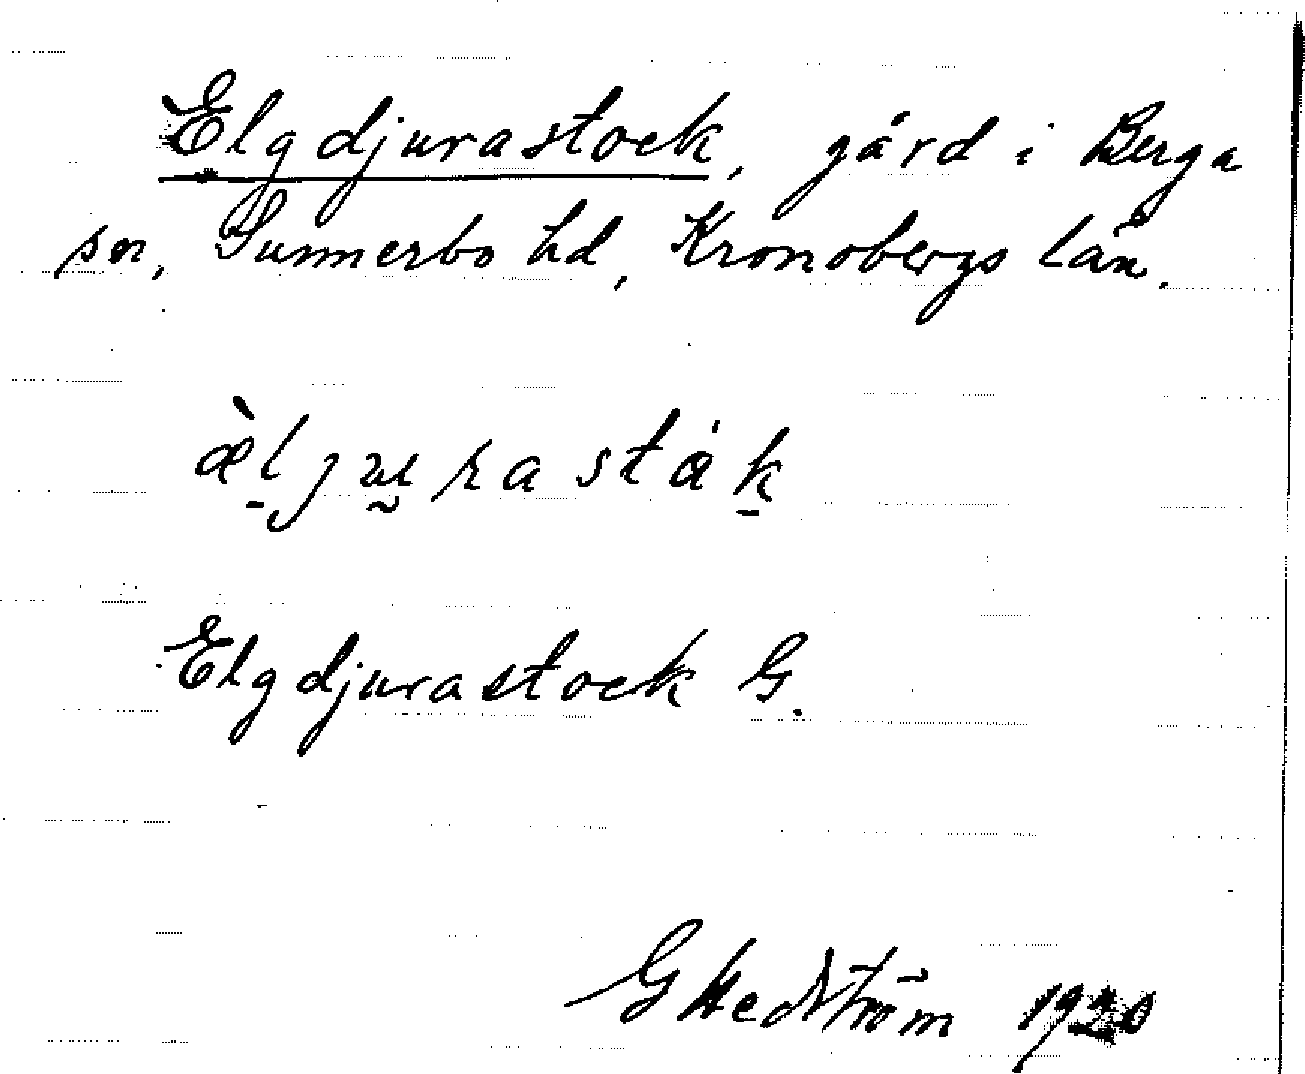 Elgdjurastock, gård i Berga
sn, Sunnerbo hd, Kronobergs län.
æ̀ljurastàk
Elgdjurastock G.
G Hedström 1920